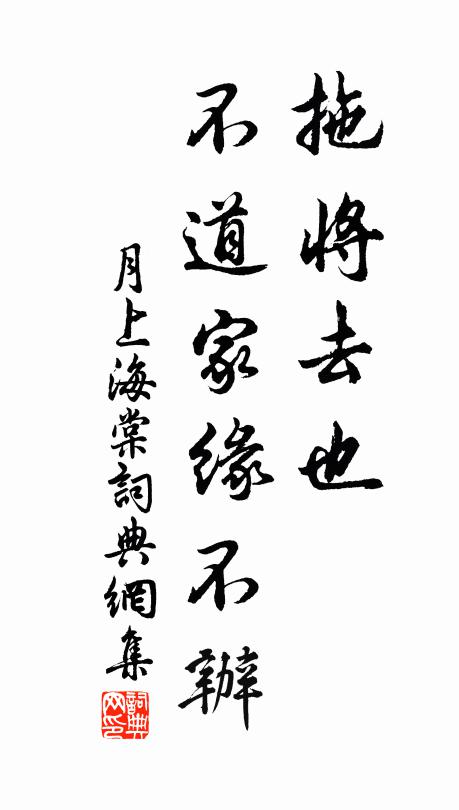 拖將去也
不道家緣不辦
月上海棠詞典網集
詞典網印